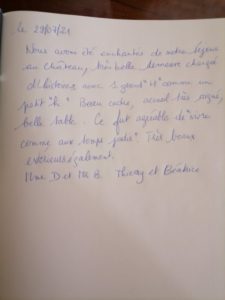 Le 29/07/21
Nous avons été enchantés de notre séjour
au château, très belle demeure chargé
d'Histoires avec 1 grand "H" comme un
petit "h". Beau cadre, accueil très soigné,
belle table. Ce fut agréable de "vivre
comme aux temps jadis". Très beaux
extérieurs également.
Mme D et Mr B. Thierry et Béatrice